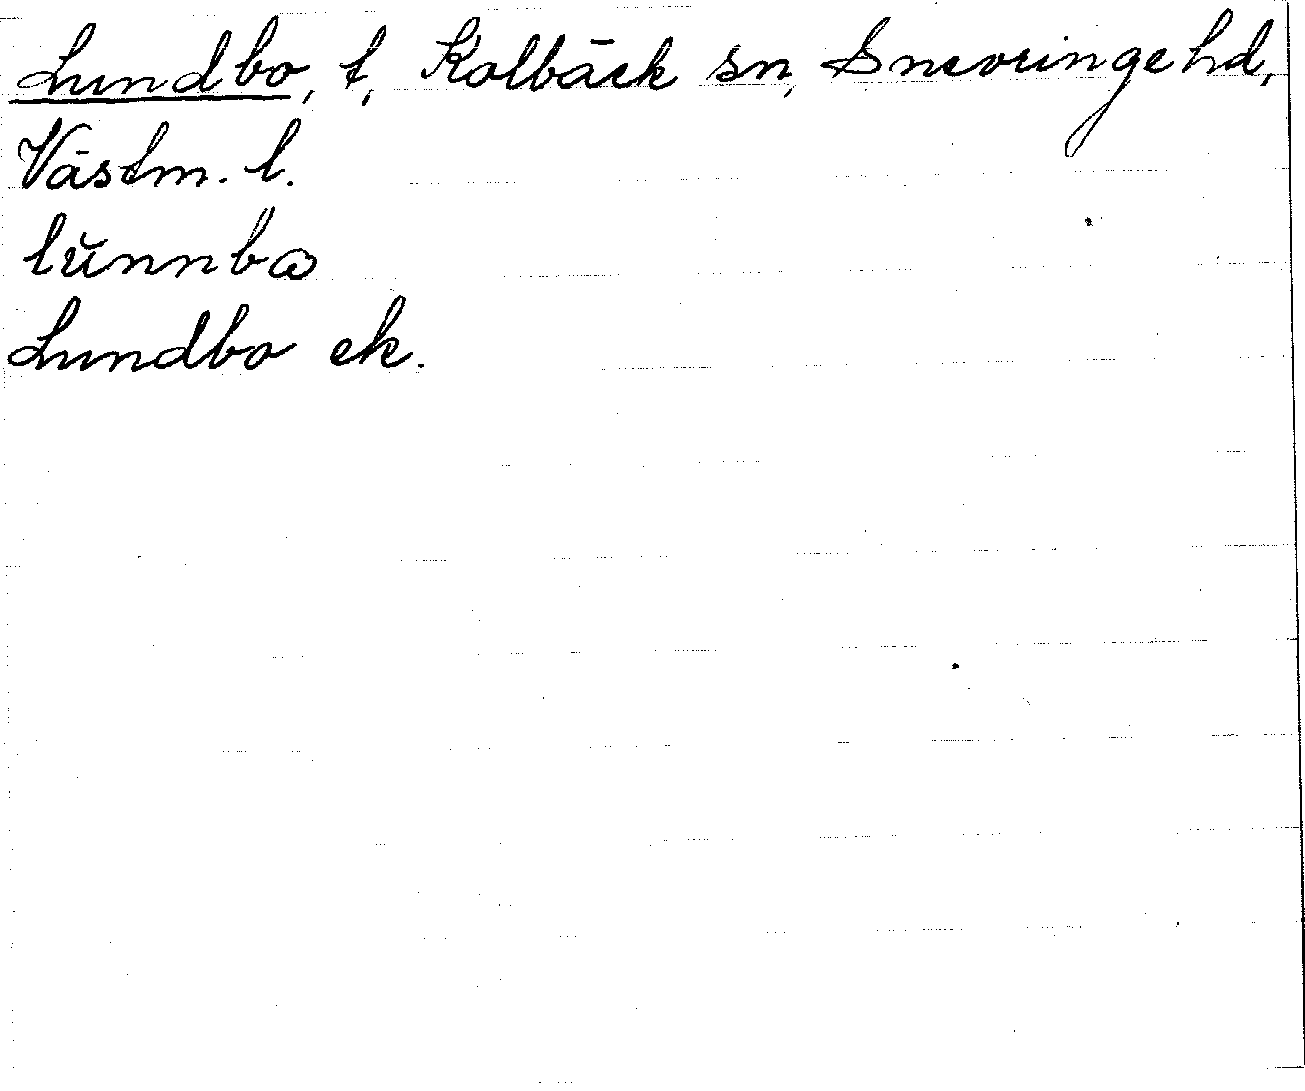 Lundbo, t, Kolbäck sn, Snevringe hd,
Västm. l.
lŭnnbω
Lundbo ek.